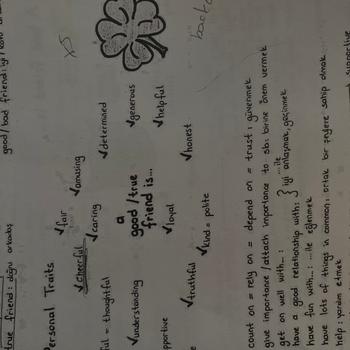 true friend: doğru arkadaş
good/bad friend: iyi/kötü
Personal Traits
✓fair
✓cheerful
✓caring
✓amusing
✓determined
= thoughtful
a
good/true
friend is...
✓generous
✓understanding
✓loyal
✓helpful
✓truthful
✓honest
✓kind = polite
count on = rely on = depend on = trust: güvenmek
give importance/attach importance to sb: birine önem vermek
get on well with...:
have a good relationship with: } ...ile iyi anlaşmak, geçinmek
have fun with...: ...ile eğlenmek
have lots of things in common: ortak bir şeylere sahip olmak
help: yardım etmek
supportive